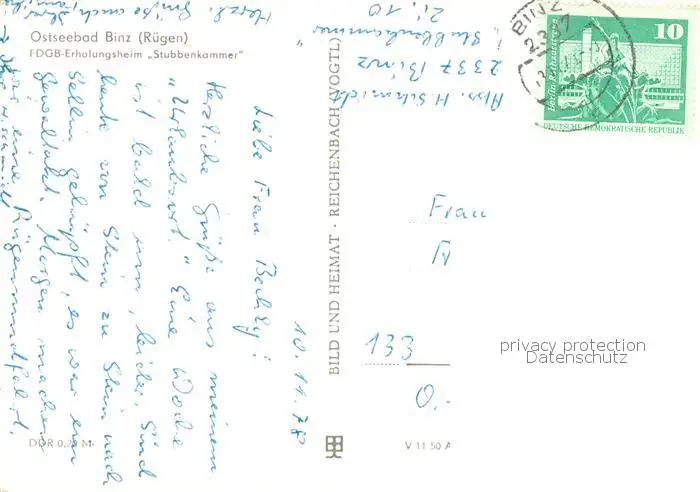 Ostseebad Binz (Rügen)
FDGB-Erholungsheim „Stubbenkammer"
10.11.78
Liebe Frau
Herzliche Grüße aus meinem
"Urlaubsort." Eine Woche
ist bald um, leider. Sind
heute von Stein zu Stein nach
Sellin gehüpft, es war ein
Gewaltakt. Morgen machen
wir eine Rügenrundfahrt.
H. Schmidt
Herzl. Grüße auch
Abs. H. Schmidt
2337 Binz
"Stubbenkammer"
Zi. 10
BILD UND HEIMAT · REICHENBACH (VOGTL)
BINZ
2337
10
Berlin, Rathausstraße
DEUTSCHE DEMOKRATISCHE REPUBLIK
Frau
133
privacy protection
Datenschutz
DDR 0,20 M
V 11 50 A